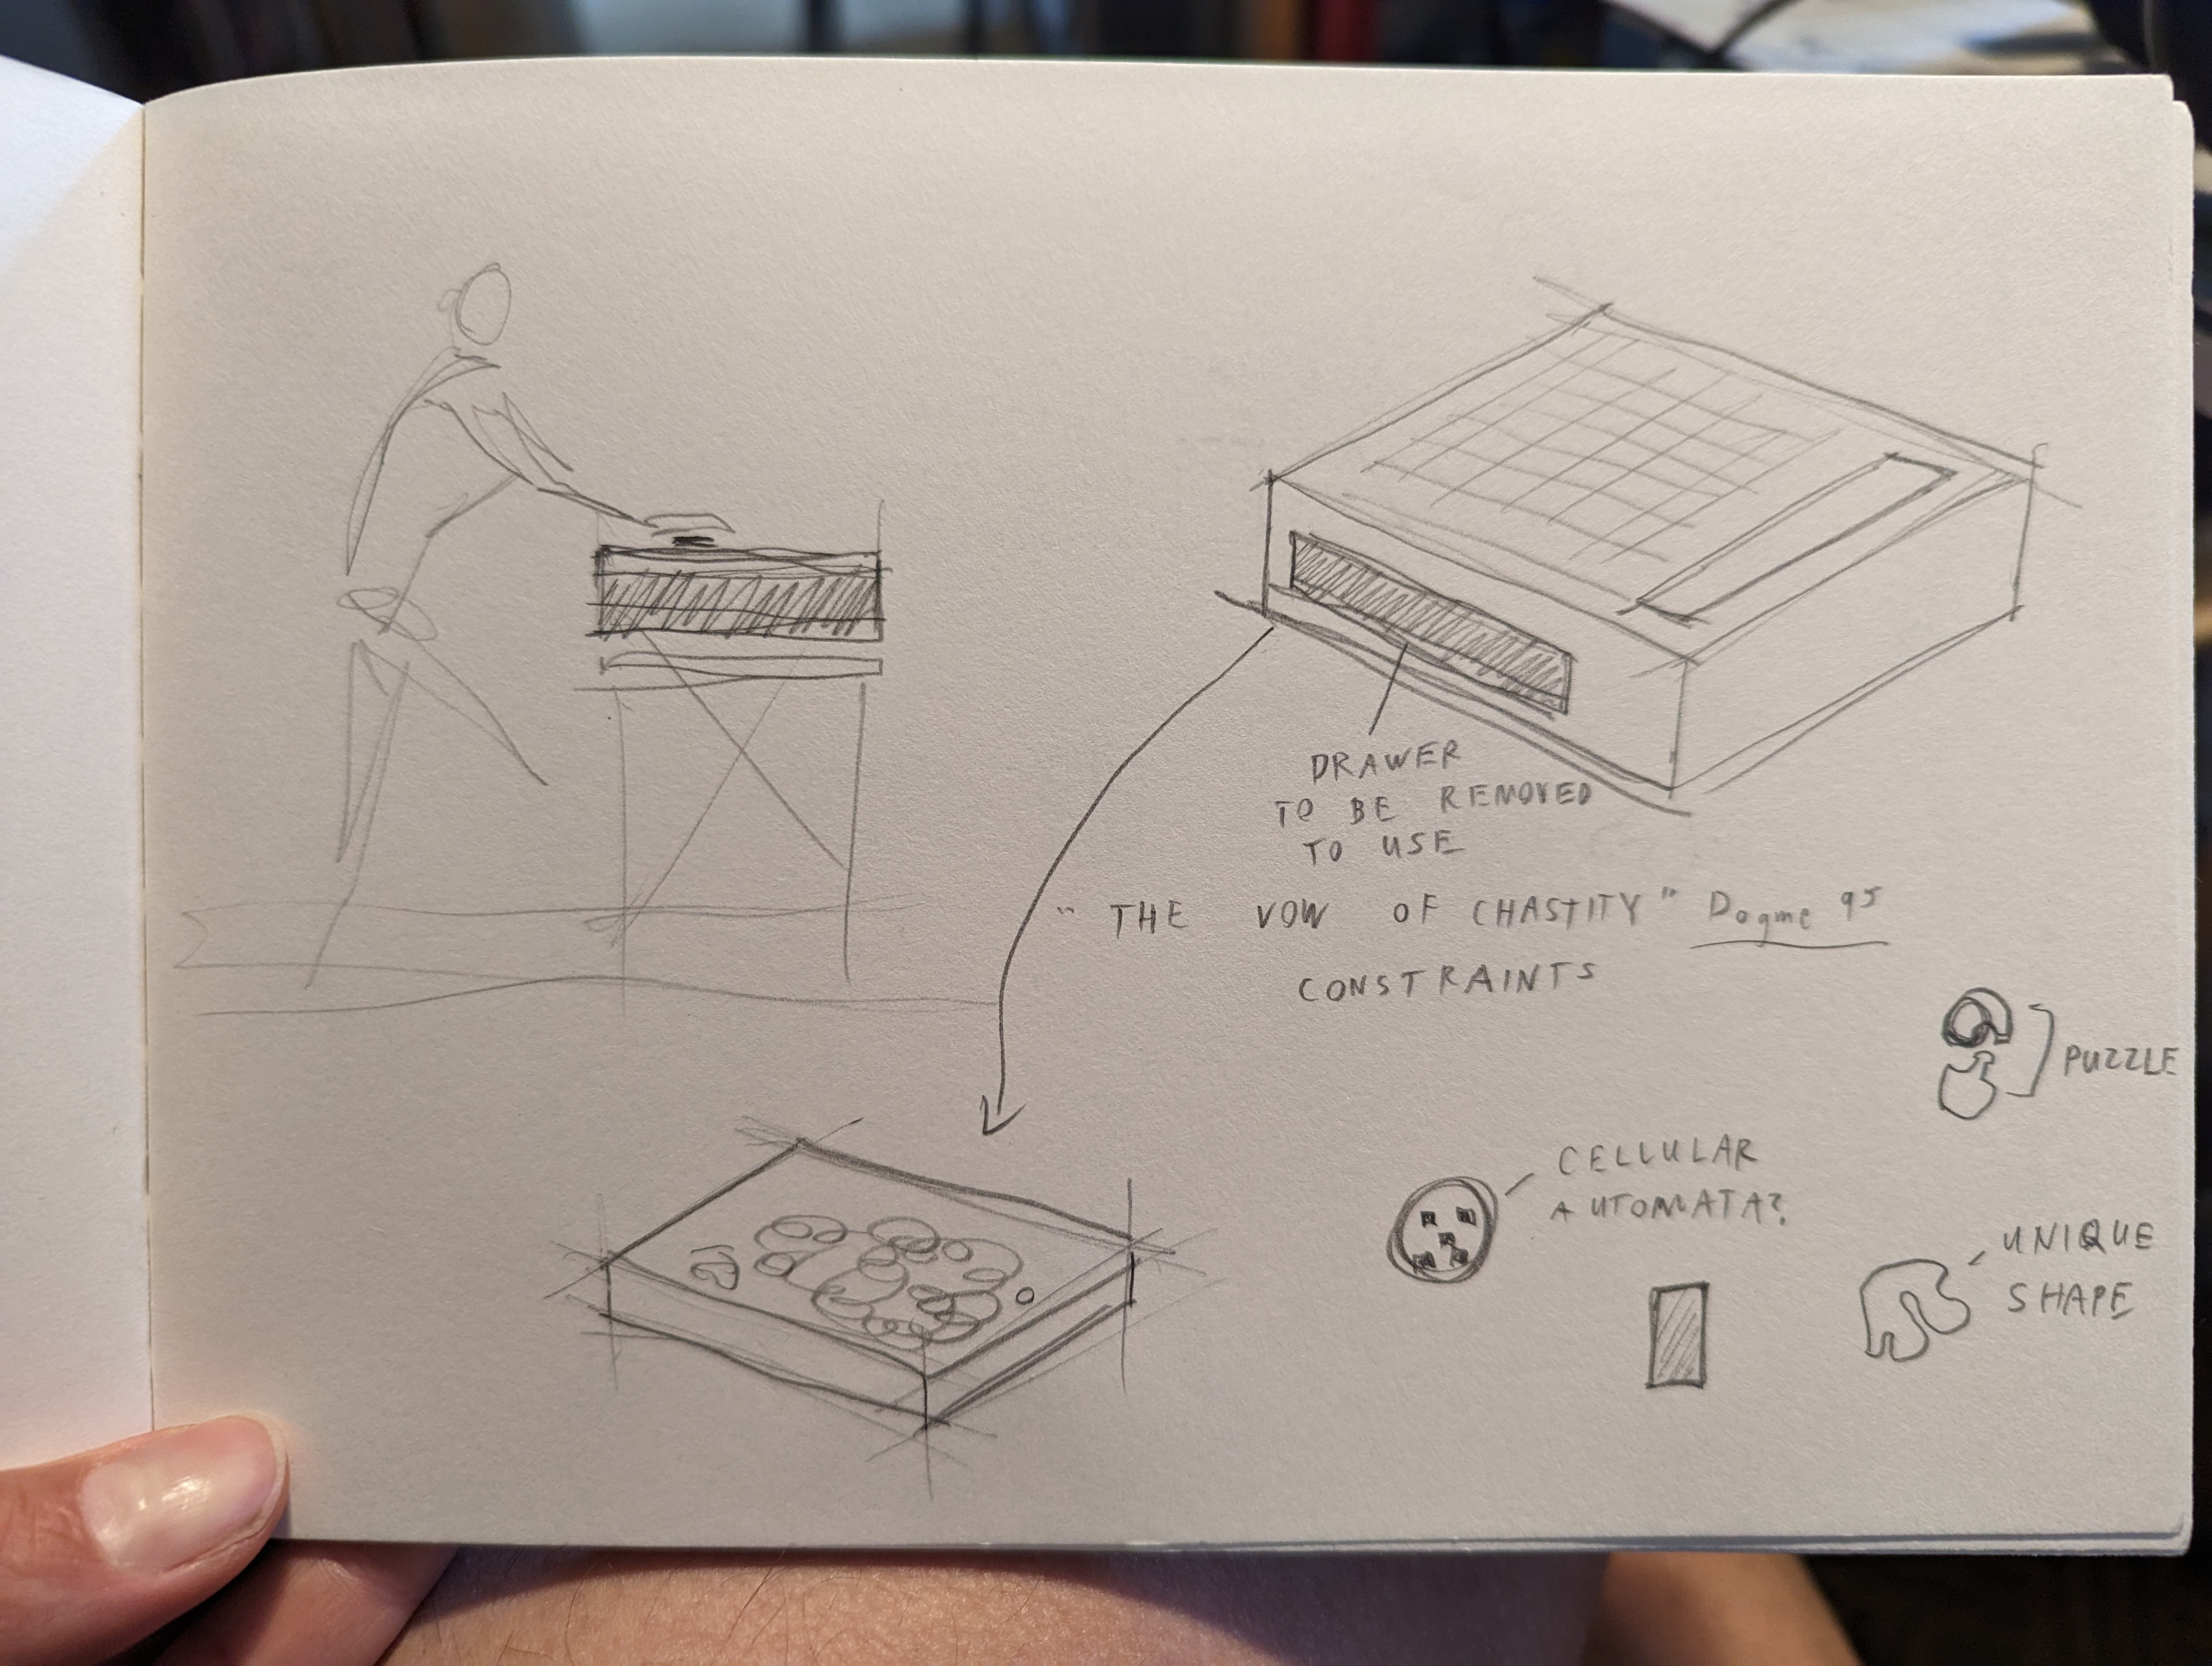 DRAWER
TO BE REMOVED
TO USE
" THE VOW OF CHASTITY " Dogme 95
CONSTRAINTS
PUZZLE
CELLULAR
AUTOMATA?
UNIQUE
SHAPE